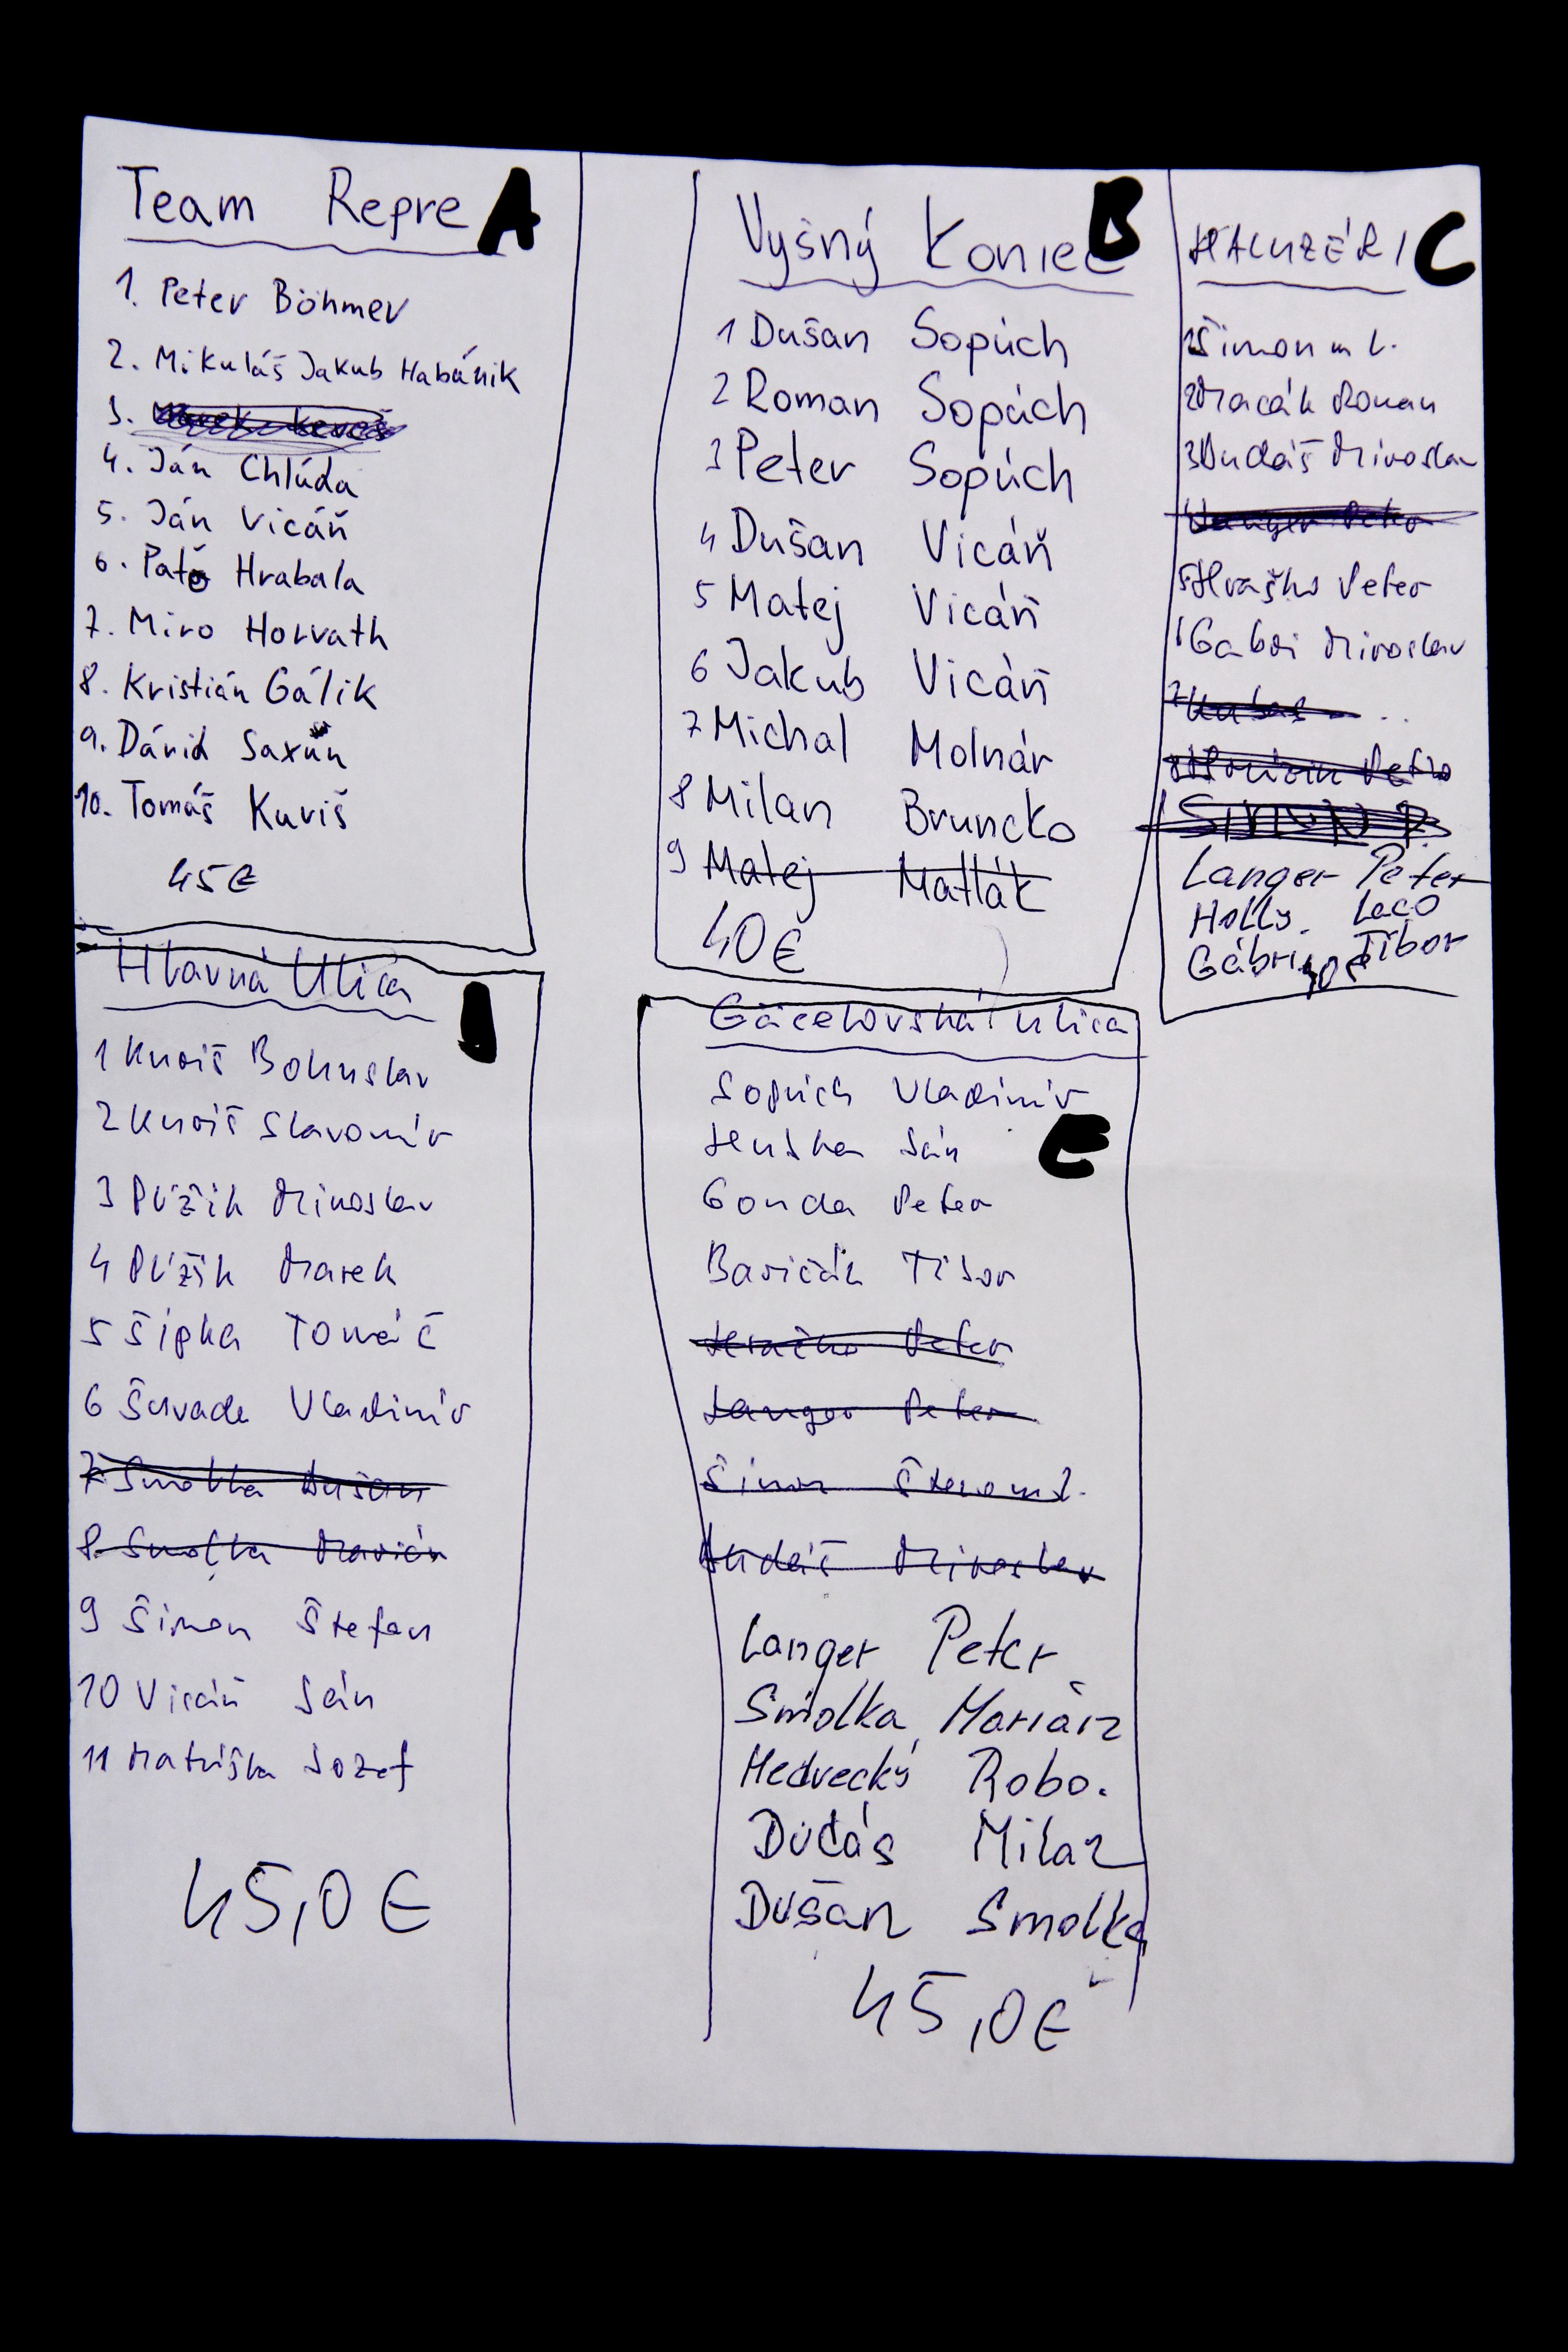 Team Repre A
1. Peter Böhmer
2. Mikuláš Jakub Habánik
3.
4. Ján Chlúda
5. Ján Vicáň
6. Paťo Hrabala
7. Miro Horvath
8. Kristián Gálik
9. Dávid Saxun
10. Tomáš Kuriš
45€
Vyšný Koniec B
1 Dušan Sopúch
2 Roman Sopúch
3 Peter Sopúch
4 Dušan Vicáň
5 Matej Vicáň
6 Jakub Vicáň
7 Michal Molnár
8 Milan Bruncko
9 Matej Matlák
40€
HALUZÉRI C
1 Šimon ml.
2 Macák Roman
3 Dudáš Miroslav
4 Langer Peter
5 Hraško Peter
Miroslav
7
8
Langer Peter
Holly. Laco
Tibor
Hlavná Ulica
1 Kuriš Bohuslav
2 Kuriš Slavomír
3 Plžik Miroslav
4 Plžik Marek
5 Šipka Tomáš
6 Vladimír
7 Smolka Dušan
8 Smolka Marián
9 Šimon Štefan
10 Vicáň Ján
11 Matúška Jozef
45,0€
Gäcelovská ulica
Sopúch Vladimír
E
Ján
Gonda Peter
Baričák Tibor
Hraško Peter
Langer Peter
Šimon ml.
Dudáš Miroslav
Langer Peter
Smolka Marián
Medvecký Robo.
Milan
Dušan Smolka
45,0€